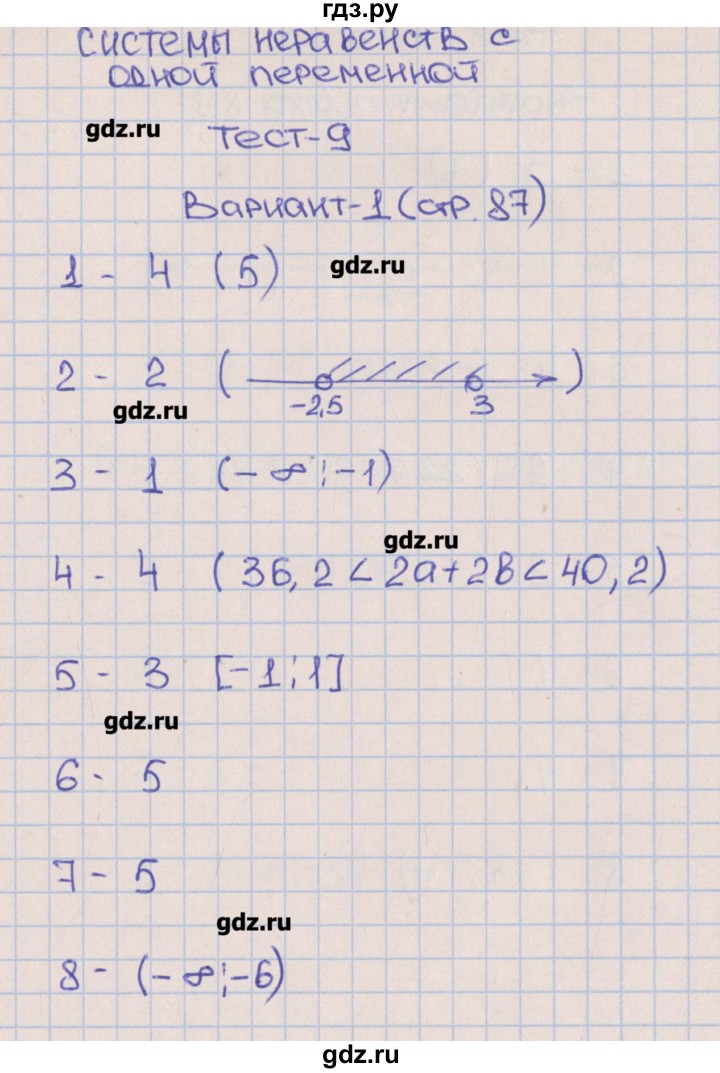 гдз.ру
Системы неравенств с
одной переменной
gdz.ru
Тест-9
Вариант-1 (стр. 87)
1 - 4 (5)
gdz.ru
2 - 2 ( -2,5 3 )
gdz.ru
3 - 1 (-∞;-1)
gdz.ru
4 - 4 (36,2<2a+2b<40,2)
5 - 3 [-1;1]
gdz.ru
6 - 5
7 - 5
gdz.ru
8 - (-∞;-6)
gdz.ru